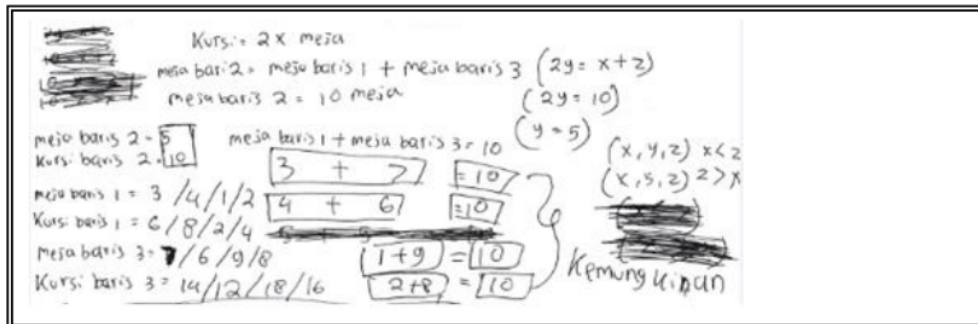 Kursi = 2x meja
meja baris 2 = meja baris 1 + meja baris 3 (2y = x+z)
meja baris 2 = 10 meja (2y = 10)
(y = 5)
meja baris 2 = 5
Kursi baris 2 = 10
meja baris 1 + meja baris 3 = 10
3 + 7 = 10
4 + 6 = 10
1+9 = 10
2+8 = 10
meja baris 1 = 3/4/1/2
Kursi baris 1 = 6/8/2/4
meja baris 3 = 7/6/9/8
Kursi baris 3 = 14/12/18/16
(x, y, z) x<z
(x, 5, z) z>x
Kemungkinan